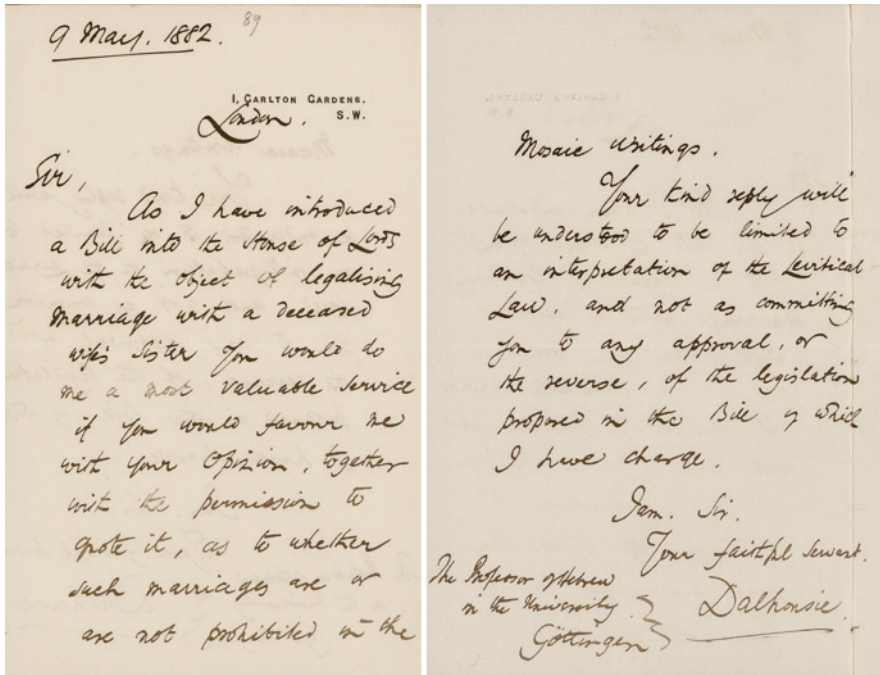 9 May. 1882.
89
1, CARLTON GARDENS.
S.W.
London.
Sir,
As I have introduced
a Bill into the House of Lords
with the object of legalising
marriage with a deceased
wife's sister you would do
me a most valuable service
if you would favour me
with your Opinion, together
with the permission to
quote it, as to whether
such marriages are or
are not prohibited in the
Mosaic writings.
Your kind reply will
be understood to be limited to
an interpretation of the Levitical
Law, and not as committing
you to any approval, or
the reverse, of the legislation
proposed in the Bill of which
I have charge.
I am. Sir.
Your faithful servant.
Dalhousie
The Professor of Hebrew
in the University
Göttingen